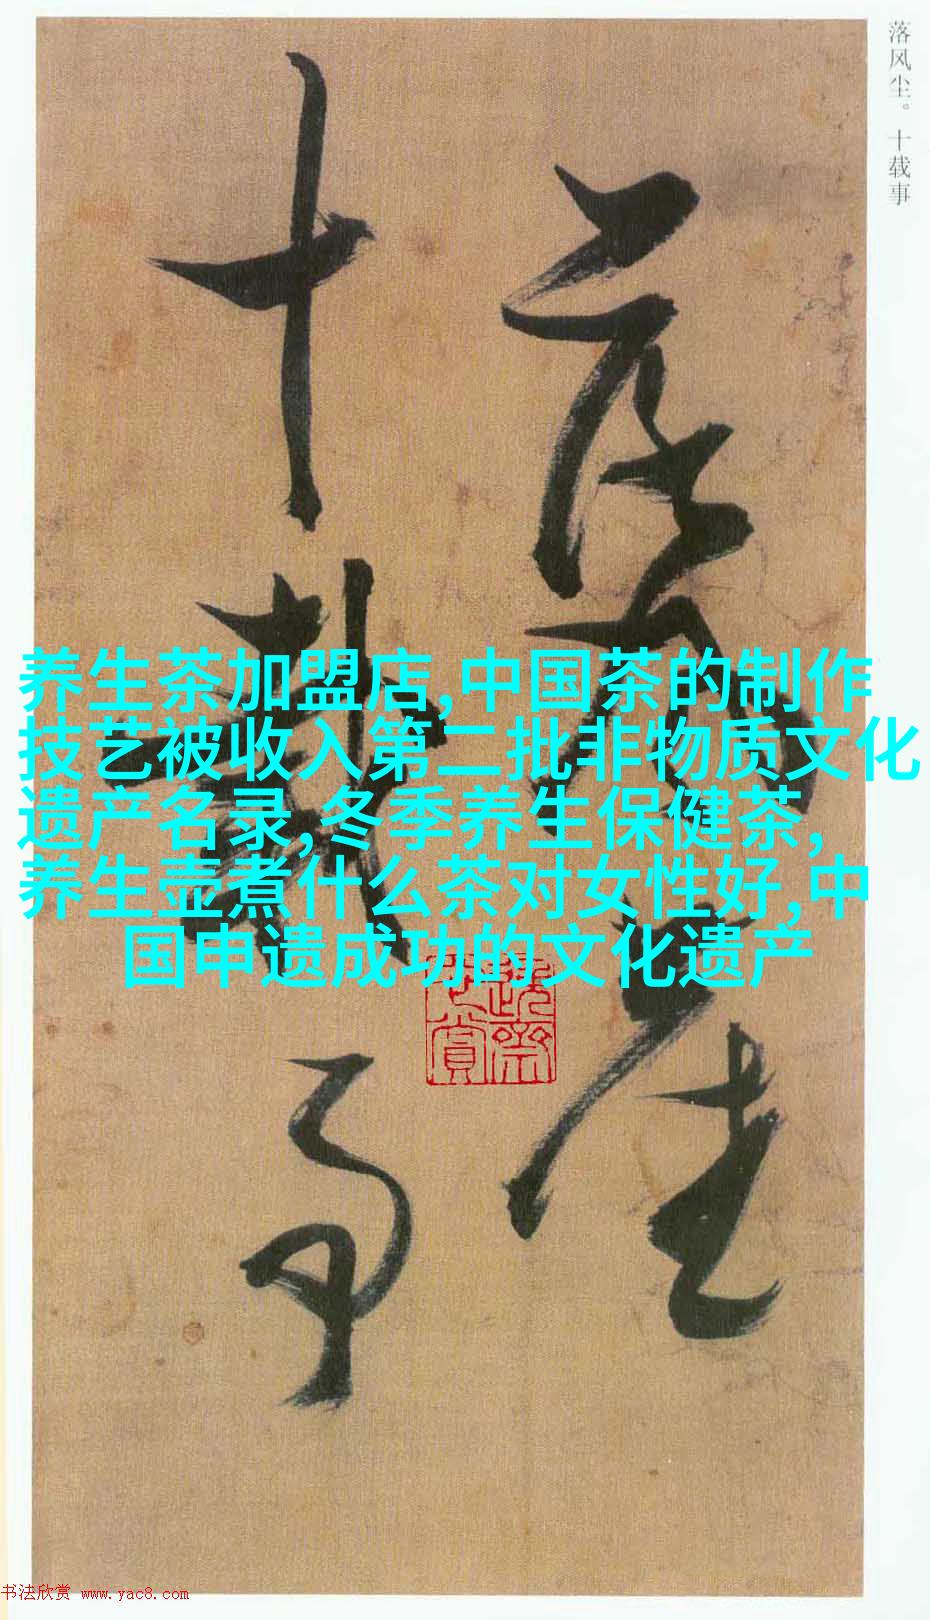 落风尘。十载事
十載事
养生茶加盟店,中国茶的制作
技艺被收入第二批非物质文化
遗产名录,冬季养生保健茶,
养生壶煮什么茶对女性好,中
国申遗成功的文化遗产
书法欣赏 www.yac8.com